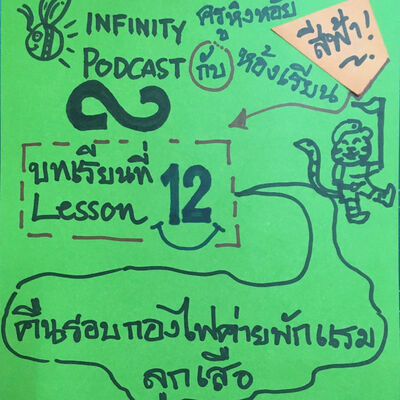 INFINITY
PODCAST
ครูหิ่งห้อย
กับ
ห้องเรียน
สีฟ้า!
บทเรียนที่
Lesson 12
คืนรอบกองไฟค่ายพักแรม
ลูกเสือ